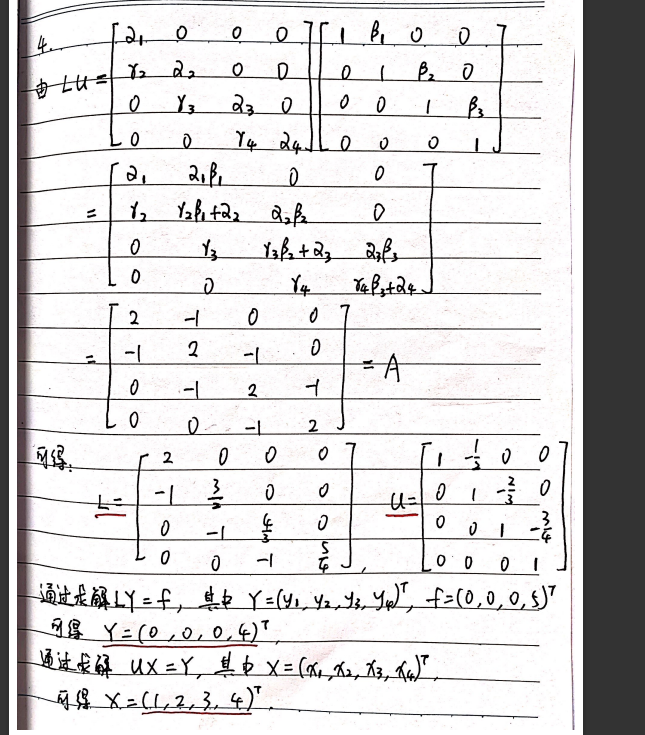 4.
由 LU = [ α₁ 0 0 0 ] [ 1 β₁ 0 0 ]
[ γ₂ α₂ 0 0 ] [ 0 1 β₂ 0 ]
[ 0 γ₃ α₃ 0 ] [ 0 0 1 β₃ ]
[ 0 0 γ₄ α₄ ] [ 0 0 0 1 ]
= [ α₁ α₁β₁ 0 0 ]
[ γ₂ γ₂β₁+α₂ α₂β₂ 0 ]
[ 0 γ₃ γ₃β₂+α₃ α₃β₃ ]
[ 0 0 γ₄ γ₄β₃+α₄ ]
= [ 2 -1 0 0 ]
[ -1 2 -1 0 ] = A
[ 0 -1 2 -1 ]
[ 0 0 -1 2 ]
可得:
L = [ 2 0 0 0 ] U = [ 1 -1/2 0 0 ]
[ -1 3/2 0 0 ] [ 0 1 -2/3 0 ]
[ 0 -1 4/3 0 ] [ 0 0 1 -3/4 ]
[ 0 0 -1 5/4 ], [ 0 0 0 1 ]
通过求解 LY=f, 其中 Y=(y₁, y₂, y₃, y₄)ᵀ, f=(0,0,0,5)ᵀ
可得 Y=(0,0,0,4)ᵀ,
通过求解 UX=Y, 其中 X=(x₁,x₂,x₃,x₄)ᵀ,
可得 X=(1,2,3,4)ᵀ.